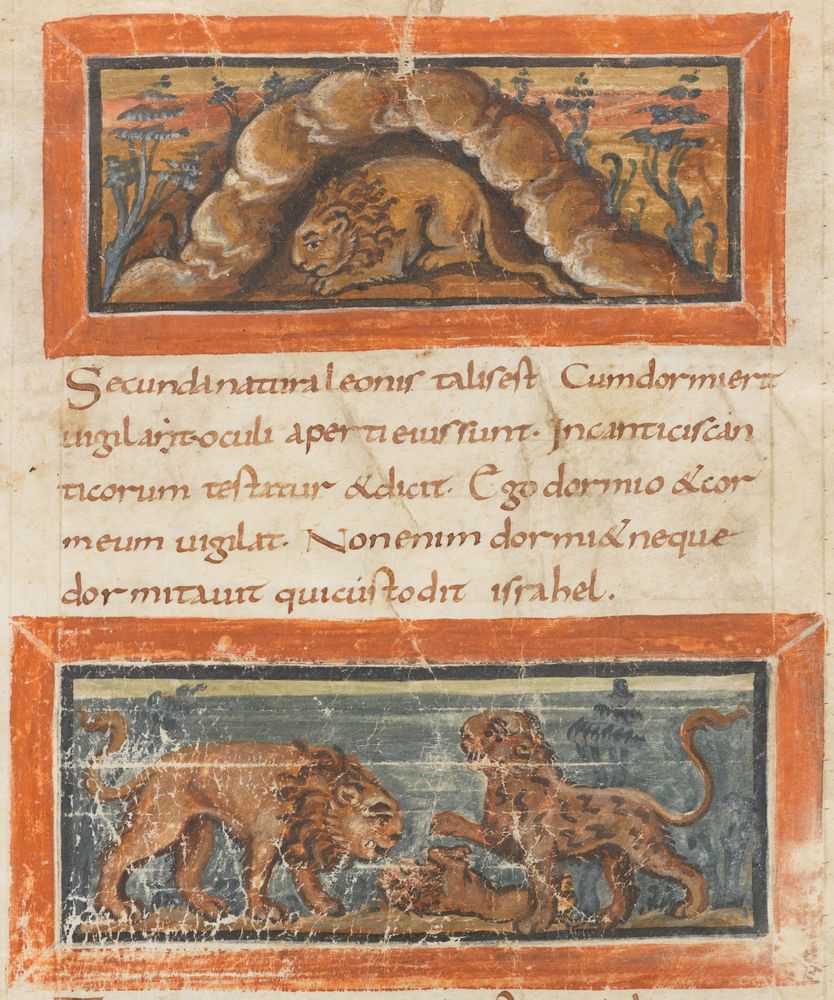 Secunda natura leonis talis est Cum dormierit
vigilant oculi aperti eius sunt. In canticis can
ticorum testatur & dicit. Ego dormio & cor
meum uigilat. Non enim dormi& neque
dormitauit qui custodit israhel.